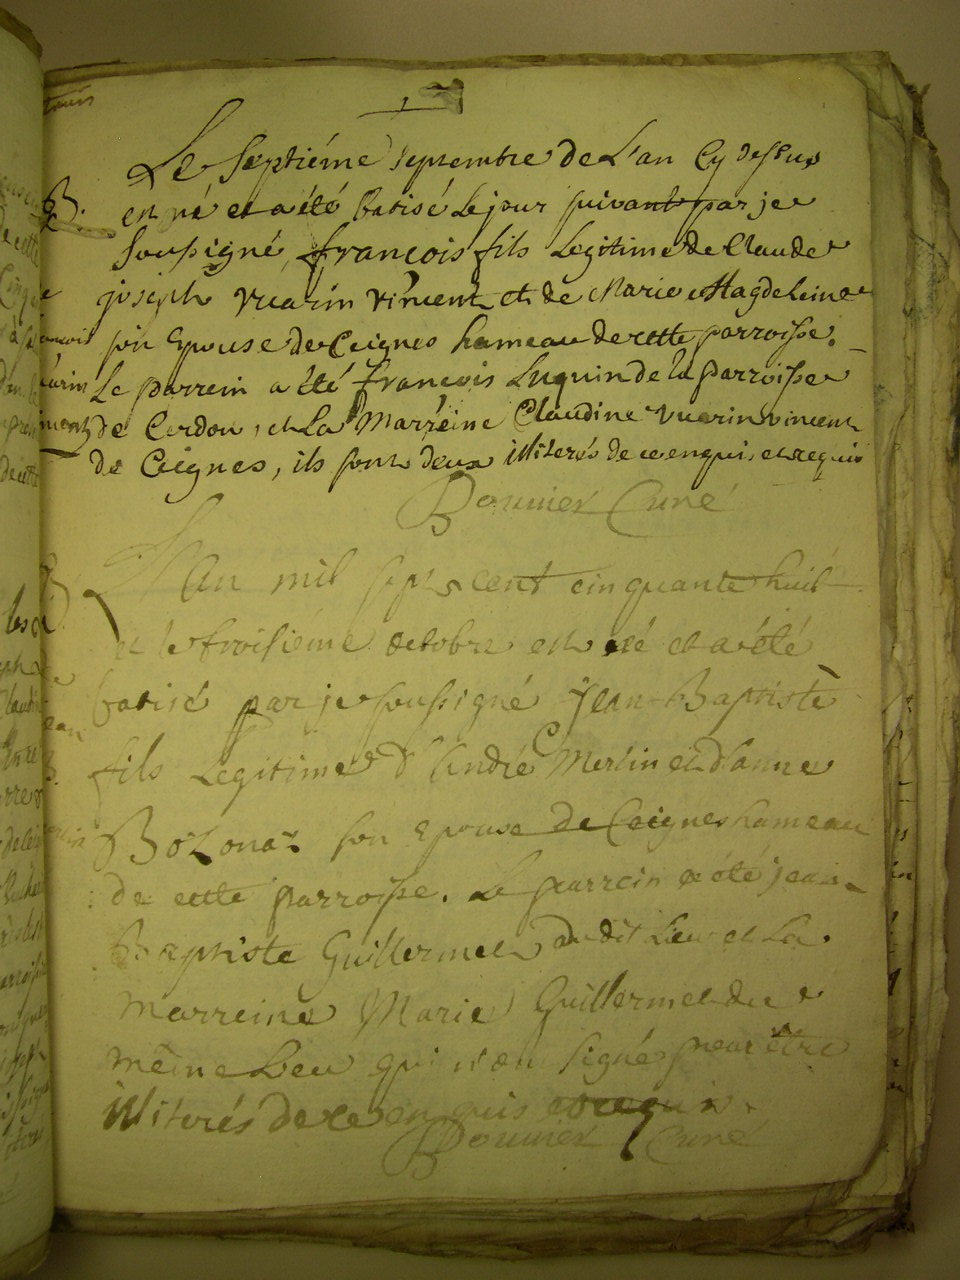 Le septiéme septembre de L'an Cy dessus
B. est né et a été batisé Le jour suivant par je
soussigné, françois fils Legitime de Claude
joseph vuarin vincent et de Marie Magdeleine
son Epouse de Ceignes hameau de cette parroisse.
Le parrein a été françois Luquin de la parroisse
de Cerdon, et La Marreine Claudine vuarin vincent
de Ceignes, ils sont deux illiterés de ce enquis et requis
Bounier Curé
L'an mil sept cent cinquante huit
B. et le troisiéme octobre est né et a été
batisé par je soussigné jean-Baptiste
fils Legitime d'André Merlin et d'anne
Bozonat son Epouse de Ceignes hameau
de cette parroisse. Le parrein a été jean
Baptiste Guillermet du dit Lieu et La
marreine Marie Guillermet du
même Lieu qui n'on signé pour être
illiterés de ce enquis et requis.
Bounier Curé